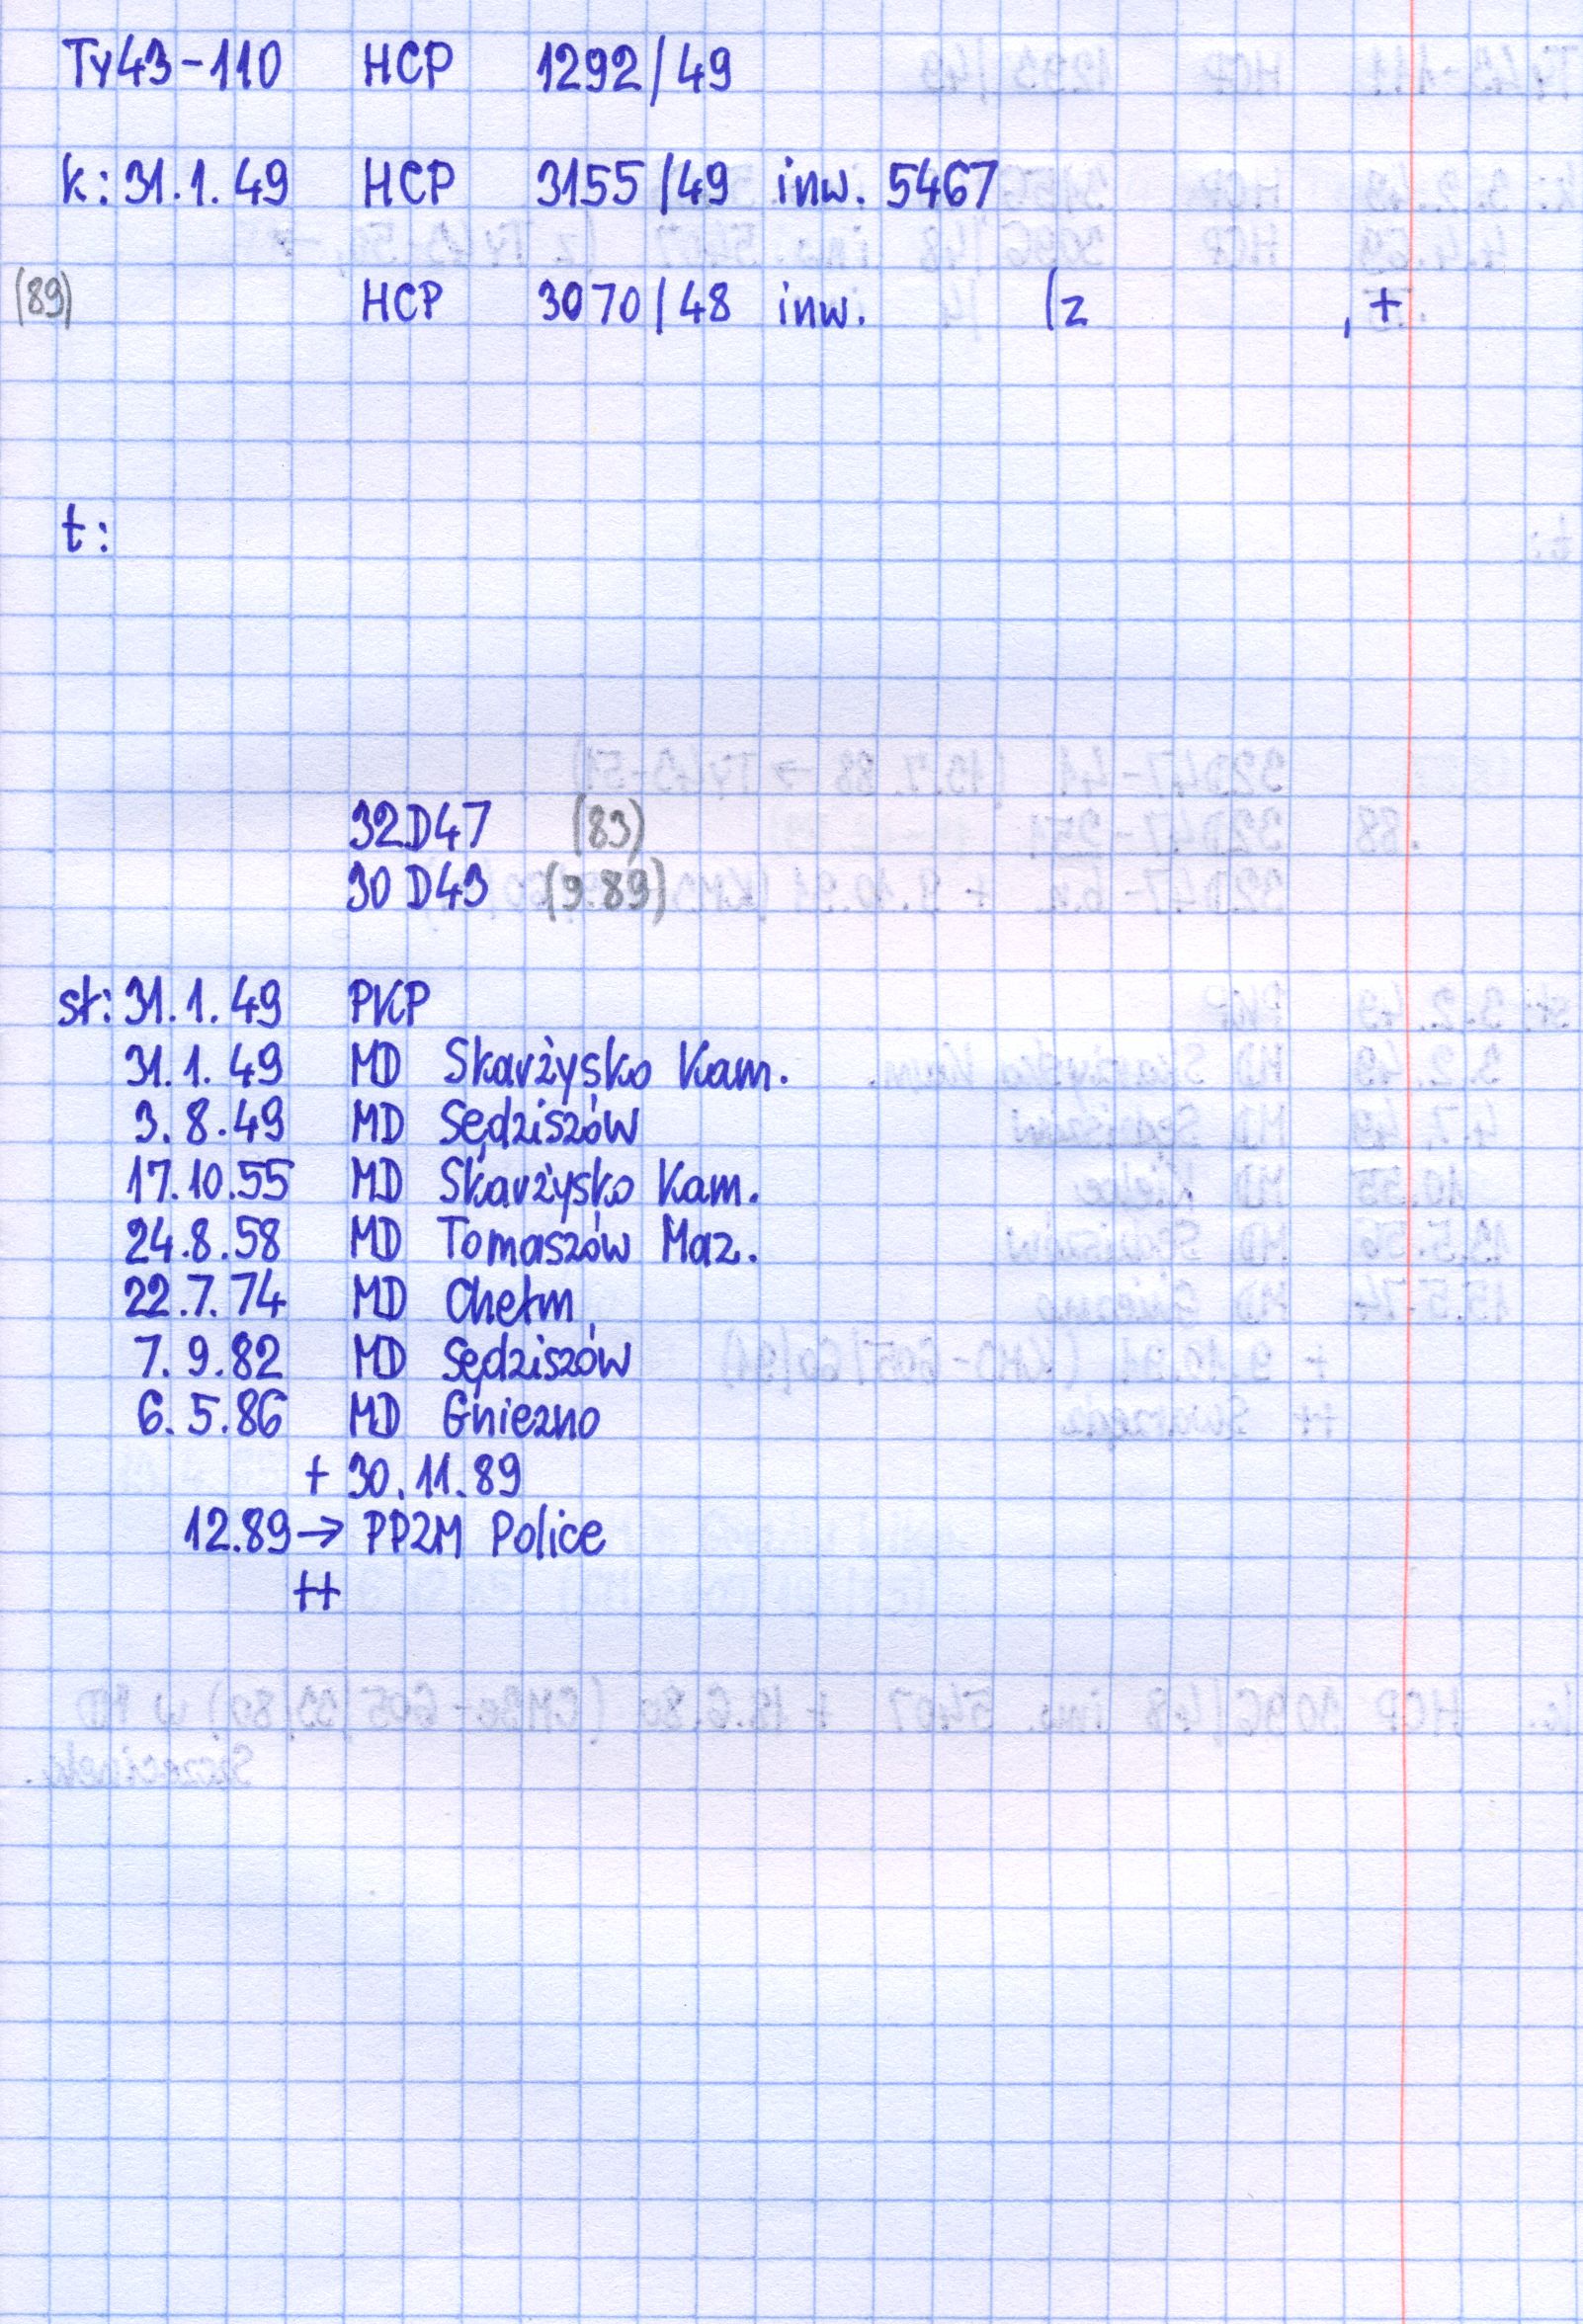 Ty43-110 HCP 1292/49
k: 31.1.49 HCP 3155/49 inw. 5467
(89) HCP 3070/48 inw. (z , +
t:
32D47 (83)
30D43 (9.89)
st: 31.1.49 PKP
31.1.49 MD Skarżysko Kam.
3.8.49 MD Sędziszów
17.10.55 MD Skarżysko Kam.
24.8.58 MD Tomaszów Maz.
22.7.74 MD Chełm
7.9.82 MD Sędziszów
6.5.86 MD Gniezno
+ 30.11.89
12.89 → PPZM Police
++